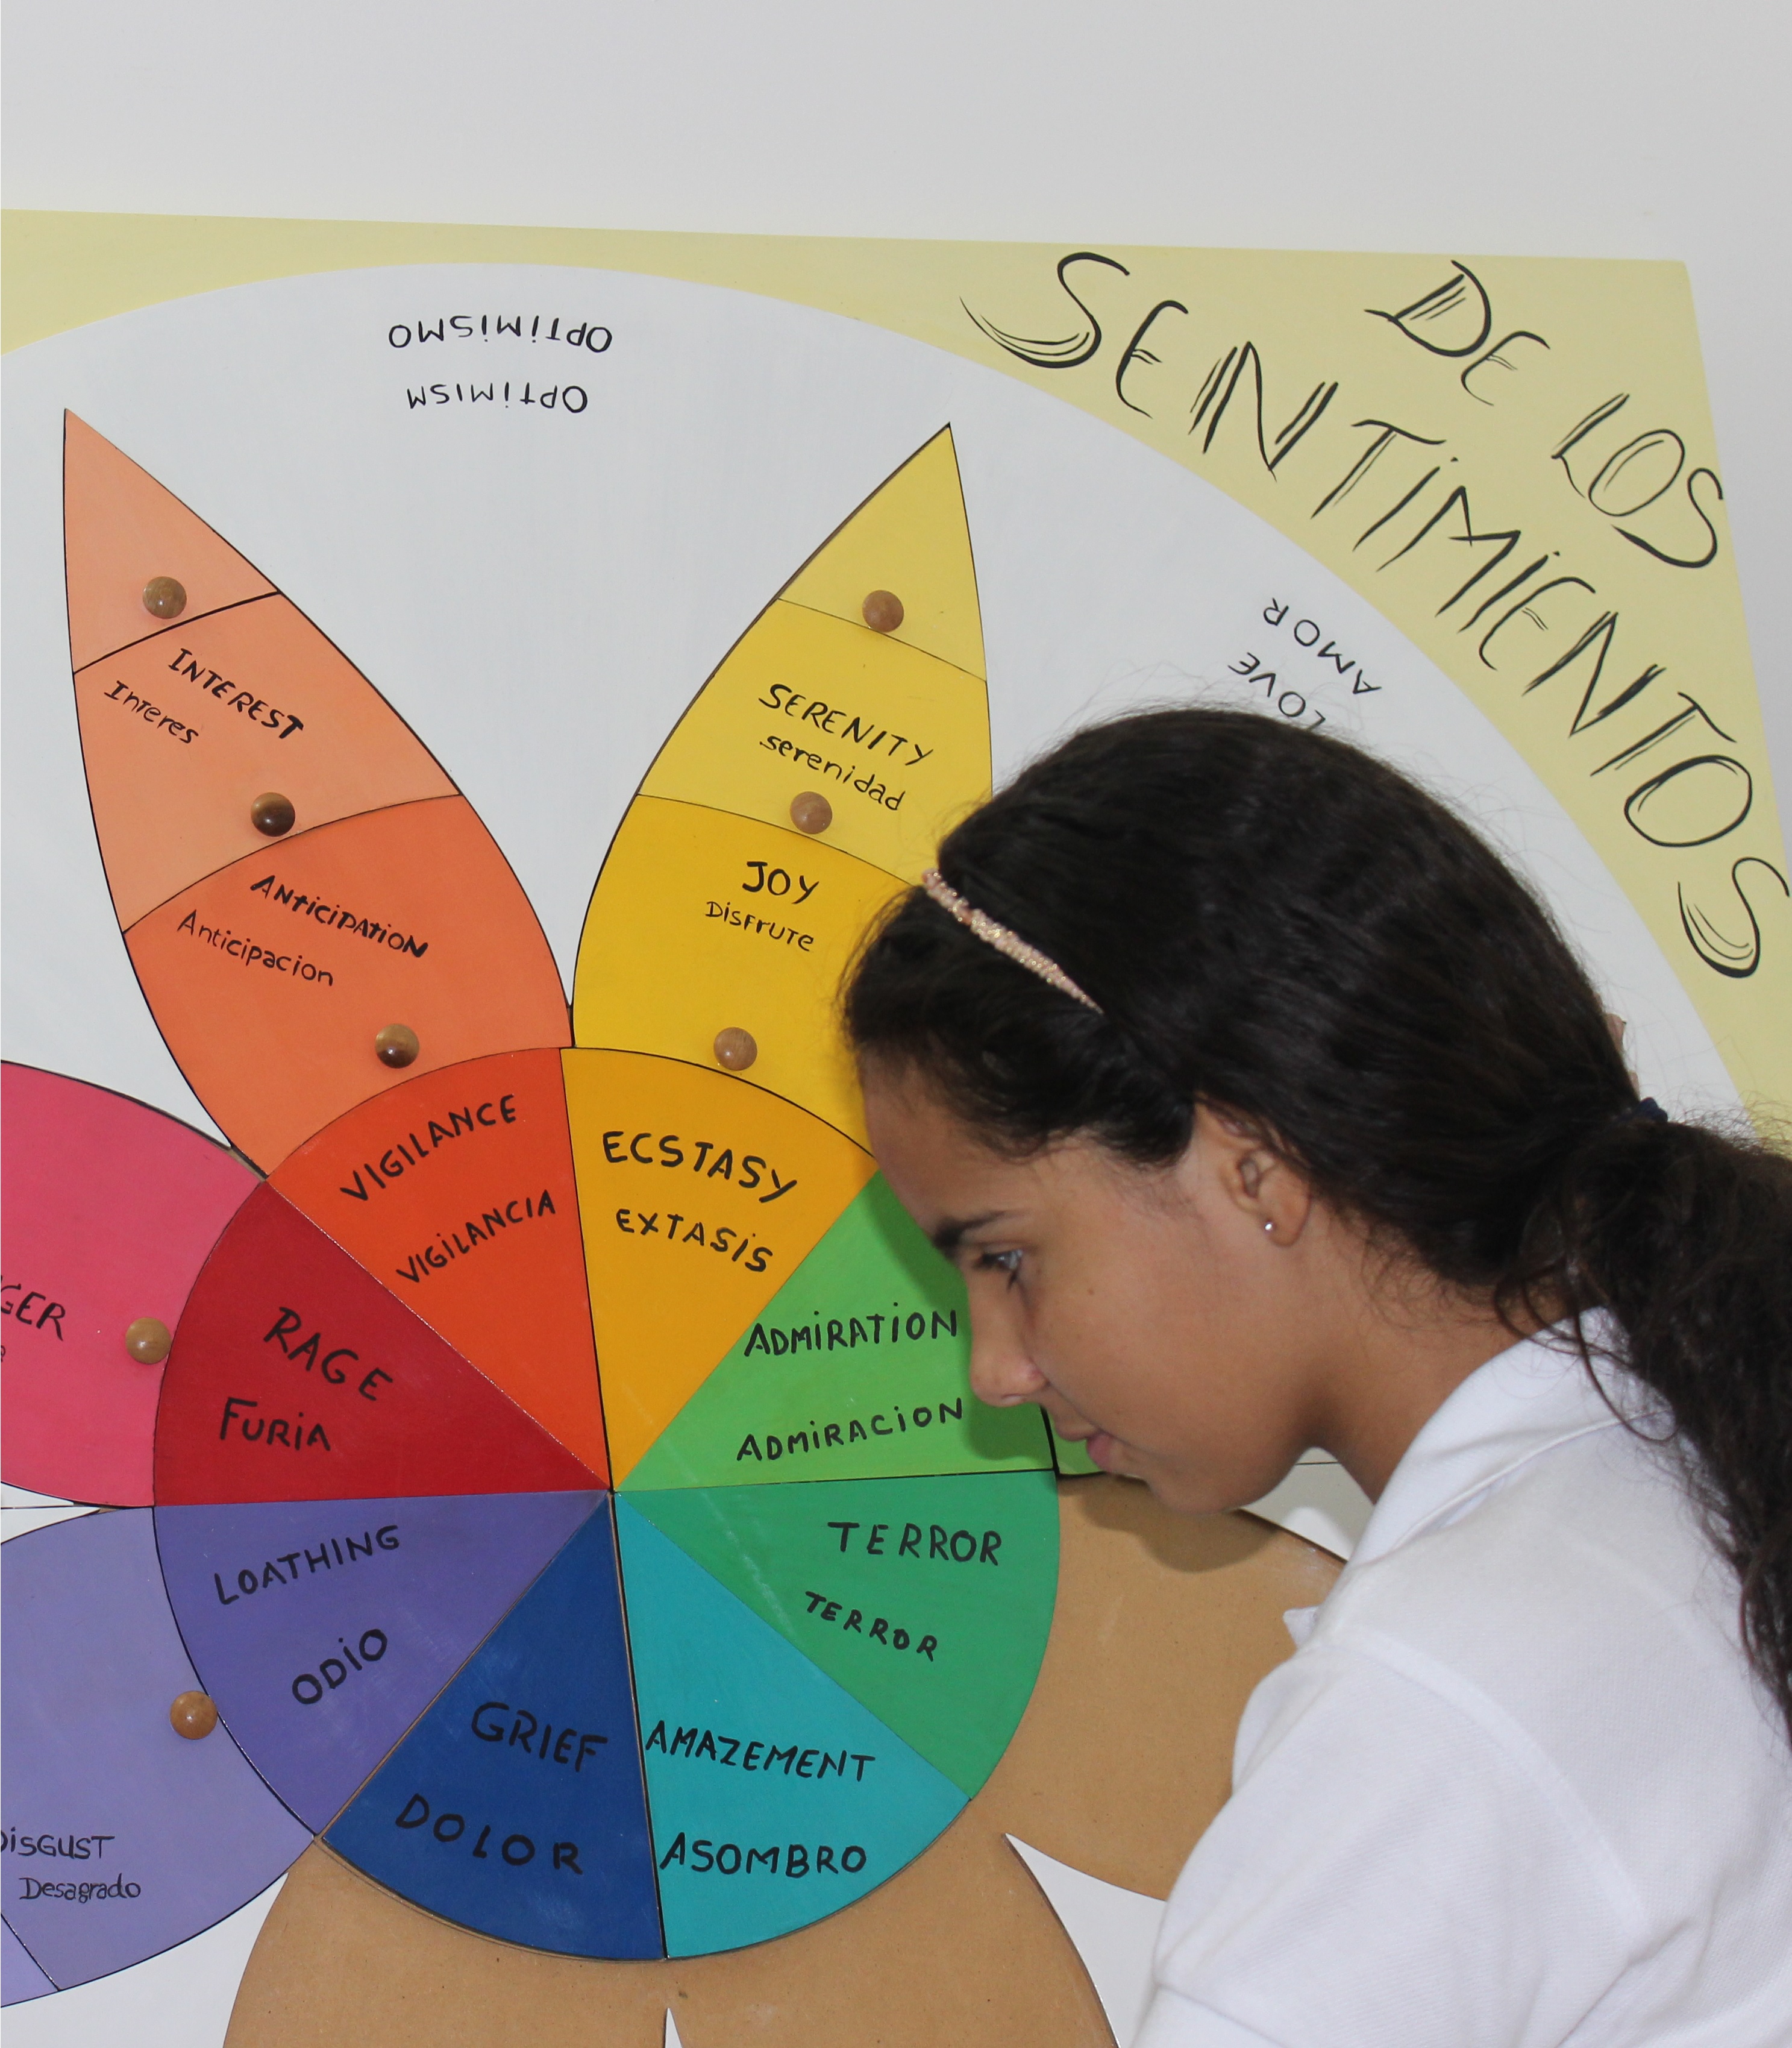 DE LOS
SENTIMIENTOS
OPTIMISMO
OPTIMISM
AMOR
LOVE
INTEREST
Interes
SERENITY
serenidad
ANTICIPATION
Anticipacion
JOY
DISFRUTE
VIGILANCE
VIGILANCIA
ECSTASY
EXTASIS
RAGE
FURIA
ADMIRATION
ADMIRACION
LOATHING
ODIO
TERROR
TERROR
GRIEF
DOLOR
AMAZEMENT
ASOMBRO
DISGUST
Desagrado